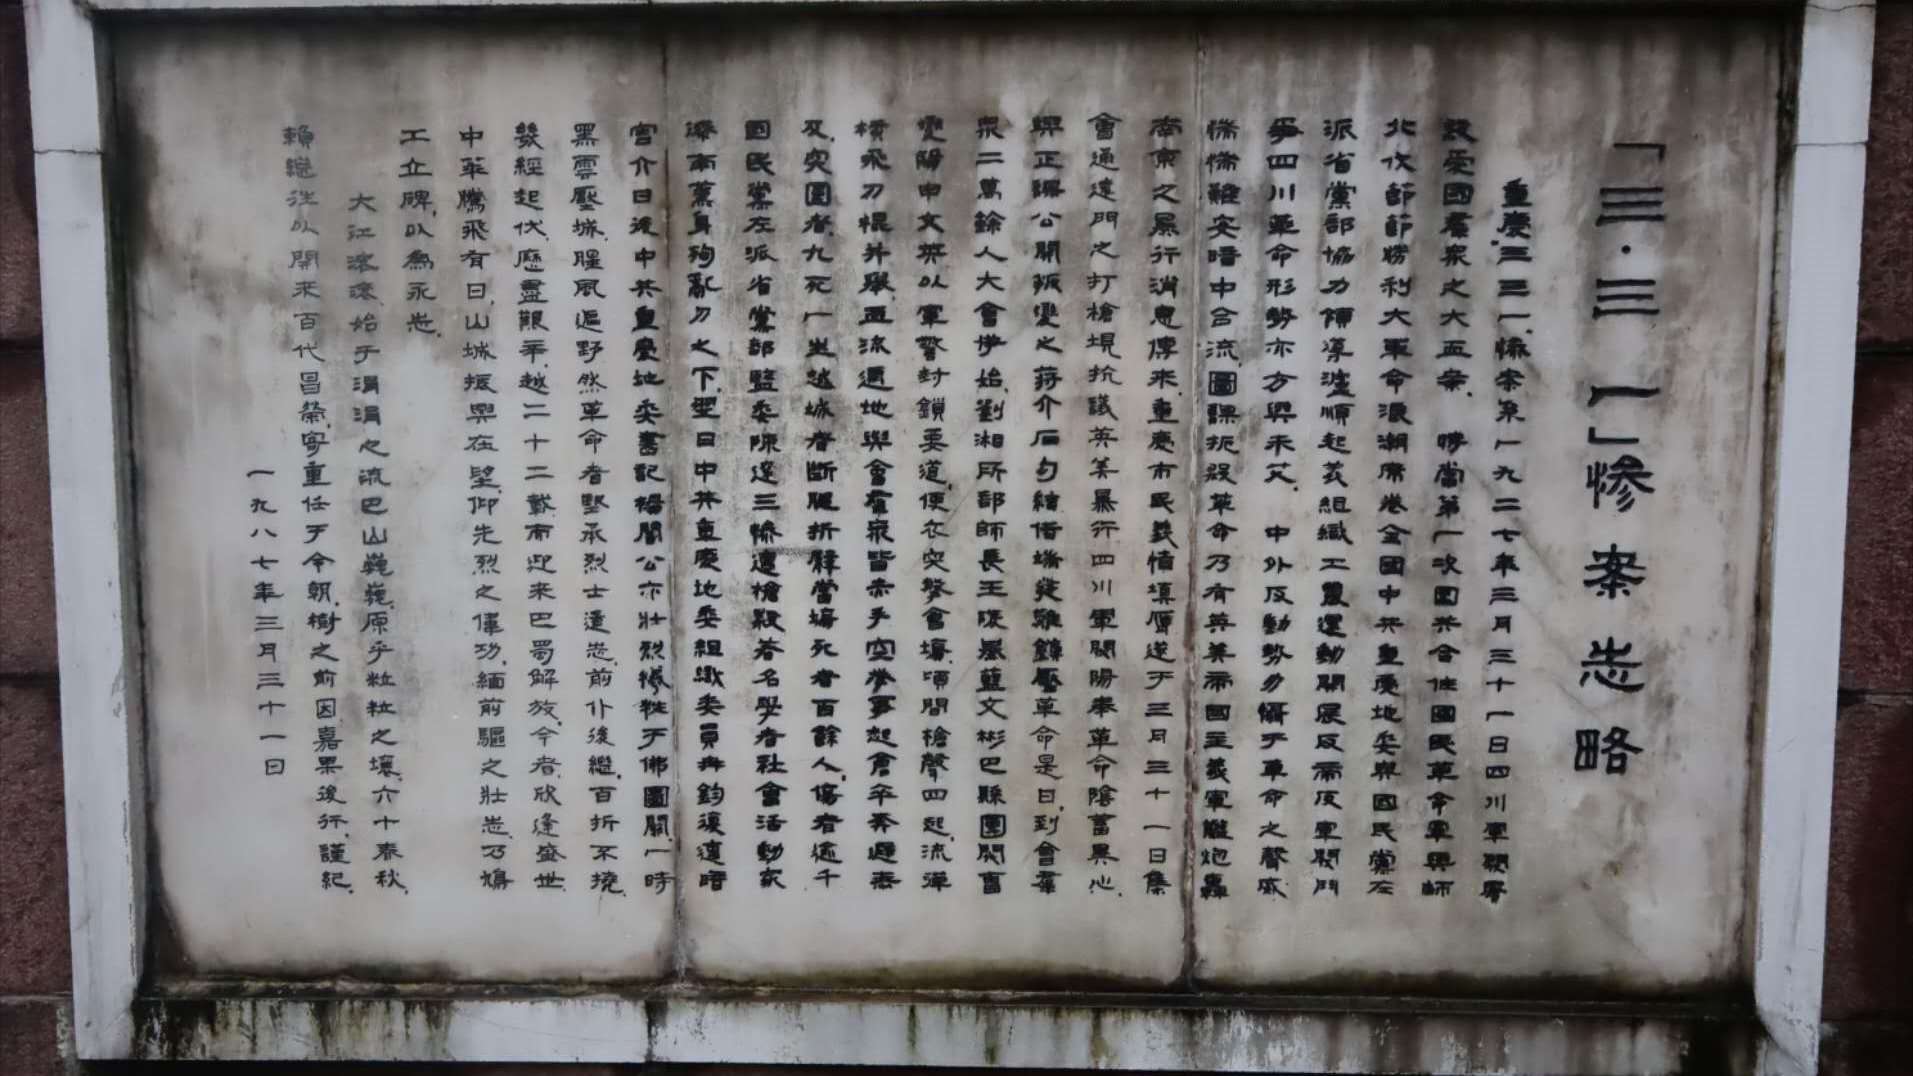 「三·三一」慘案志略
重慶三三一慘案系一九二七年三月三十一日四川軍閥屠
殺愛國羣衆之大血案. 時當第一次國共合作國民革命軍興師
北伐節節勝利大革命浪潮席卷全國中共重慶地委與國民黨左
派省黨部協力領導瀘順起義組織工農運動開展反帝反軍閥鬥
爭四川革命形勢亦方興未艾. 中外反動勢力懾于革命之聲威
惴惴難安暗中合流,圖謀扼殺革命乃有英美帝國主義軍艦炮轟
南京之暴行消息傳来,重慶市民義憤填膺遂于三月三十一日集
會通遠門之打槍垻抗議英美暴行四川軍閥陽奉革命陰蓄異心.
與正謀公開叛變之蔣介石勾結借端發難鎮壓革命是日,到會羣
衆二萬餘人大會伊始,劉湘所部師長王陵基藍文彬巴縣團閥曹
燮陽申文英以軍警封鎖要道,便衣突襲會場,頃間槍聲四起,流彈
橫飛刀棍并舉,血流遍地與會羣衆皆赤手空拳事起倉卒奔避無
及,突圍者,九死一生越城者斷腿折臂當場死者百餘人,傷者逾千
國民黨左派省黨部監委陳達三慘遭槍殺著名學者社會活動家
漆南薰身殉亂刀之下,翌日中共重慶地委組織委員冉鈞復遭暗
害介日後中共重慶地委書記楊闇公亦壯烈犧牲于佛圖關,一時
黑雲壓城,腥風遍野然革命者堅承烈士遺志,前仆後繼,百折不撓,
幾經起伏,歷盡艱辛,越二十二載而迎来巴蜀解放,今者欣逢盛世
中華騰飛有日,山城振興在望,仰先烈之偉功,緬前驅之壯志,乃鳩
工立碑,以為永志.
大江滚滚,始于涓涓之流巴山巍巍,原乎粒粒之壤,六十春秋,
賴繼往以開来百代昌榮,寄重任于今朝,樹之前因,嘉果後行,謹紀.
一九八七年三月三十一日